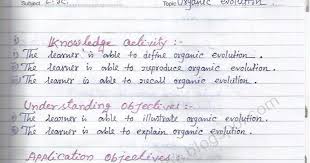 Subject L.Sc. Topic Organic Evolution.
Knowledge activity :-
① The learner is able to define organic evolution.
② The learner is able to reproduce organic evolution.
③ The learner is able to recall organic evolution.
Understanding Objectives :-
① The learner is able to illustrate organic evolution.
② The learner is able to explain organic evolution.
Application Objectives :-